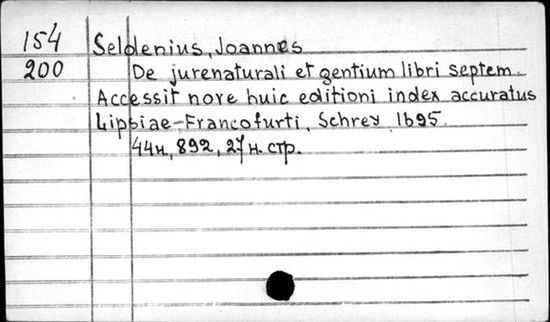 154 Seldenius, Joannes
200 De jurenaturali et gentium libri septem.
Accessit nove huic editioni index accuratus
Lipsiae-Francofurti, Schrey, 1695.
44н., 892, 27н. стр.